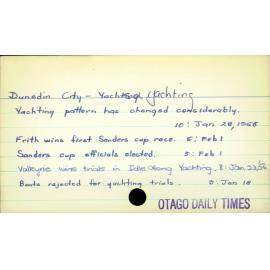 Dunedin City - Yachting
Yachting pattern has changed considerably.
10: Jan 28, 1966
Frith wins first Sanders cup race. 5: Feb 1
Sanders cup officials elected. 5: Feb 1
Valkyrie wins trials in Idle Along Yachting. 8: Jan 22,
Boats rejected for yachting trials. 8: Jan 18
OTAGO DAILY TIMES